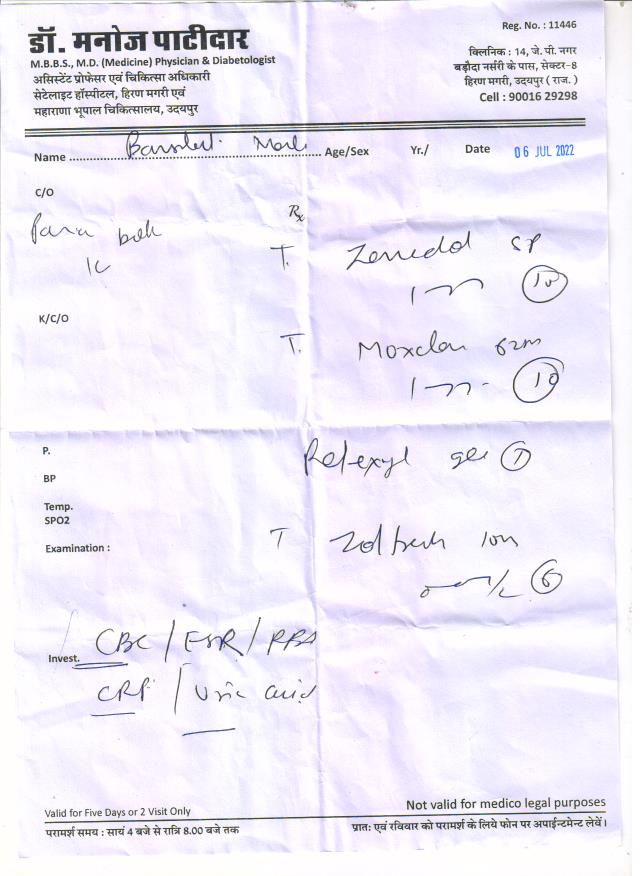 Reg. No. : 11446
डॉ. मनोज पाटीदार
M.B.B.S., M.D. (Medicine) Physician & Diabetologist
असिस्टेंट प्रोफेसर एवं चिकित्सा अधिकारी
सेटेलाइट हॉस्पीटल, हिरण मगरी एवं
महाराणा भूपाल चिकित्सालय, उदयपुर
क्लिनिक : 14, जे. पी. नगर
बड़ौदा नर्सरी के पास, सेक्टर-8
हिरण मगरी, उदयपुर ( राज. )
Cell : 90016 29298
Name Age/Sex Yr./ Date 06 JUL 2022
C/O
Rx
T. SP
1 10
K/C/O
T. Moxclav 625
1 10
P.
gel 1
BP
Temp.
SPO2
Examination :
T
6
Invest. CBC / ESR / RBS
CRP / Uric acid
Valid for Five Days or 2 Visit Only
Not valid for medico legal purposes
परामर्श समय : सायं 4 बजे से रात्रि 8.00 बजे तक
प्रातः एवं रविवार को परामर्श के लिये फोन पर अपाईन्टमेन्ट लेवें।